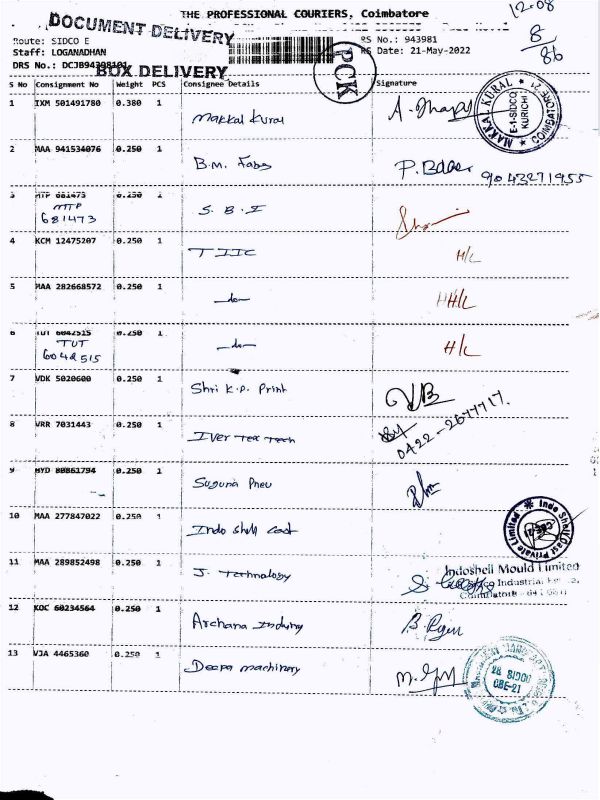 THE PROFESSIONAL COURIERS, Coimbatore
12-08
DOCUMENT DELIVERY
8
86
Route: SIDCO E
RS No.: 943981
Staff: LOGANADHAN
RS Date: 21-May-2022
DRS No.: DCJB94398101
BOX DELIVERY
PCK
S No Consignment No Weight PCS Consignee Details Signature
1 IXM 501491780 0.380 1 Makkal Kural
MAKKAL KURAL
E-1-SIDCO
KURICHI
COIMBATORE-21
2 MAA 941534076 0.250 1 B.M. Fabs
9043271955
3 MTP 681473 0.250 1 S.B.I
MTP
681473
4 KCM 12475207 0.250 1 TIIC H/L
5 MAA 282668572 0.250 1 -do- H/L
6 TUT 6042515 0.250 1 -do- H/L
TUT
6042515
7 VDK 5020600 0.250 1 Shri K.P. Print
0422-2677717.
8 VRR 7031443 0.250 1 Iver Tex Tech
9 HYD 80861794 0.250 1 Suguna Pneu
10 MAA 277847022 0.250 1 Indo Shell Cast
Indo Shell Cast Private Limited
CBE-21
11 MAA 289852498 0.250 1 J. Technology
Indoshell Mould Limited
Industrial
Coimbatore - 641 021
12 KOC 60234564 0.250 1 Archana Industry
13 VJA 4465360 0.250 1 Deepa machinery
28 SIDCO
CBE-21